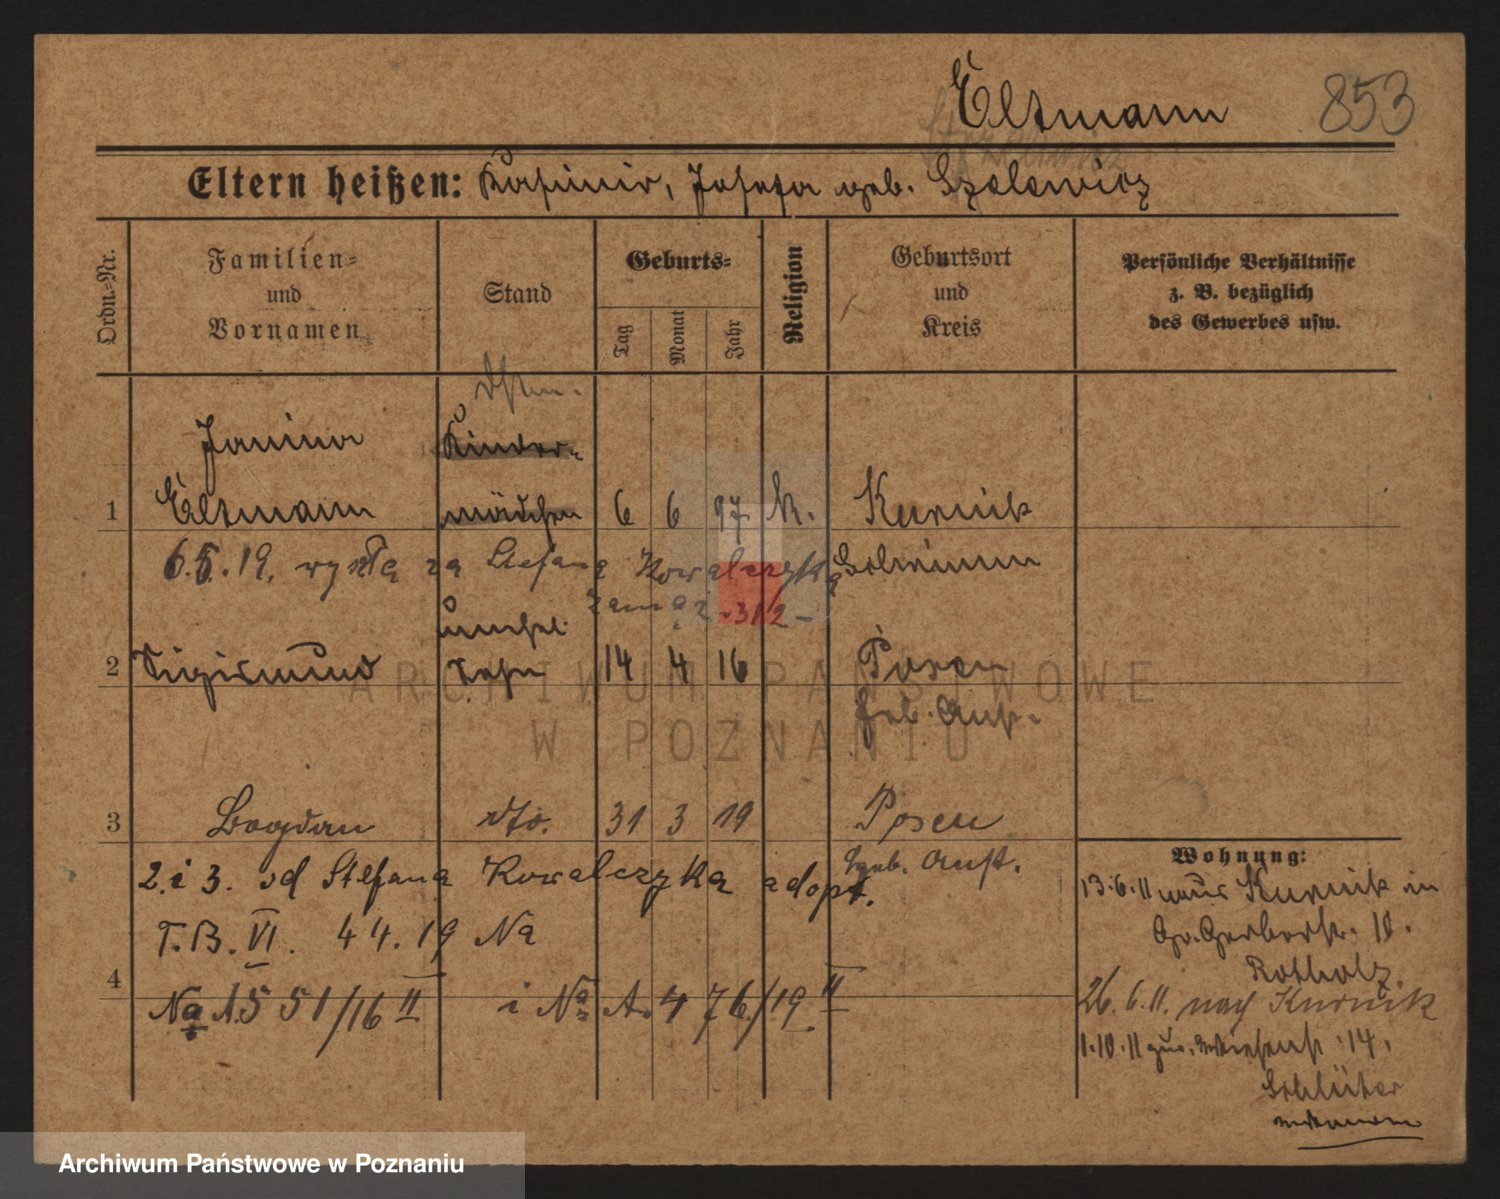 Eltmann 853
Eltern heißen: Kasimir, Josefa geb. Szelewicz
Ordn.=Nr.
Familien=
und
Vornamen
Stand
Geburts=
Tag
Monat
Jahr
Religion
Geburtsort
und
Kreis
Persönliche Verhältnisse
z. B. bezüglich
des Gewerbes usw.
Janina Kinder-
1 Eltmann mädchen 6 6 97 k. Kurnik
6.5.19. wyszła za Stefana Kowalczyka Schrimm
zamąż -312-
unehel.
2 Sigismund Sohn 14 4 16 Posen
Heb. Anst.
3 Bogdan dto. 31 3 19 Posen
Heb. Anst.
2. i 3. od Stefana Kowalczyka adopt.
T.B. VI. 44.19 Na
4
Na A. 551/16 II i Na A. 476/19 II
Wohnung:
13.6.11 aus Kurnik in
Gr. Gerberstr. 10.
Rotholz
26.6.11. nach Kurnik
1.10.11 zur. 14.
Schlüter
ARCHIWUM PAŃSTWOWE
W POZNANIU
Archiwum Państwowe w Poznaniu